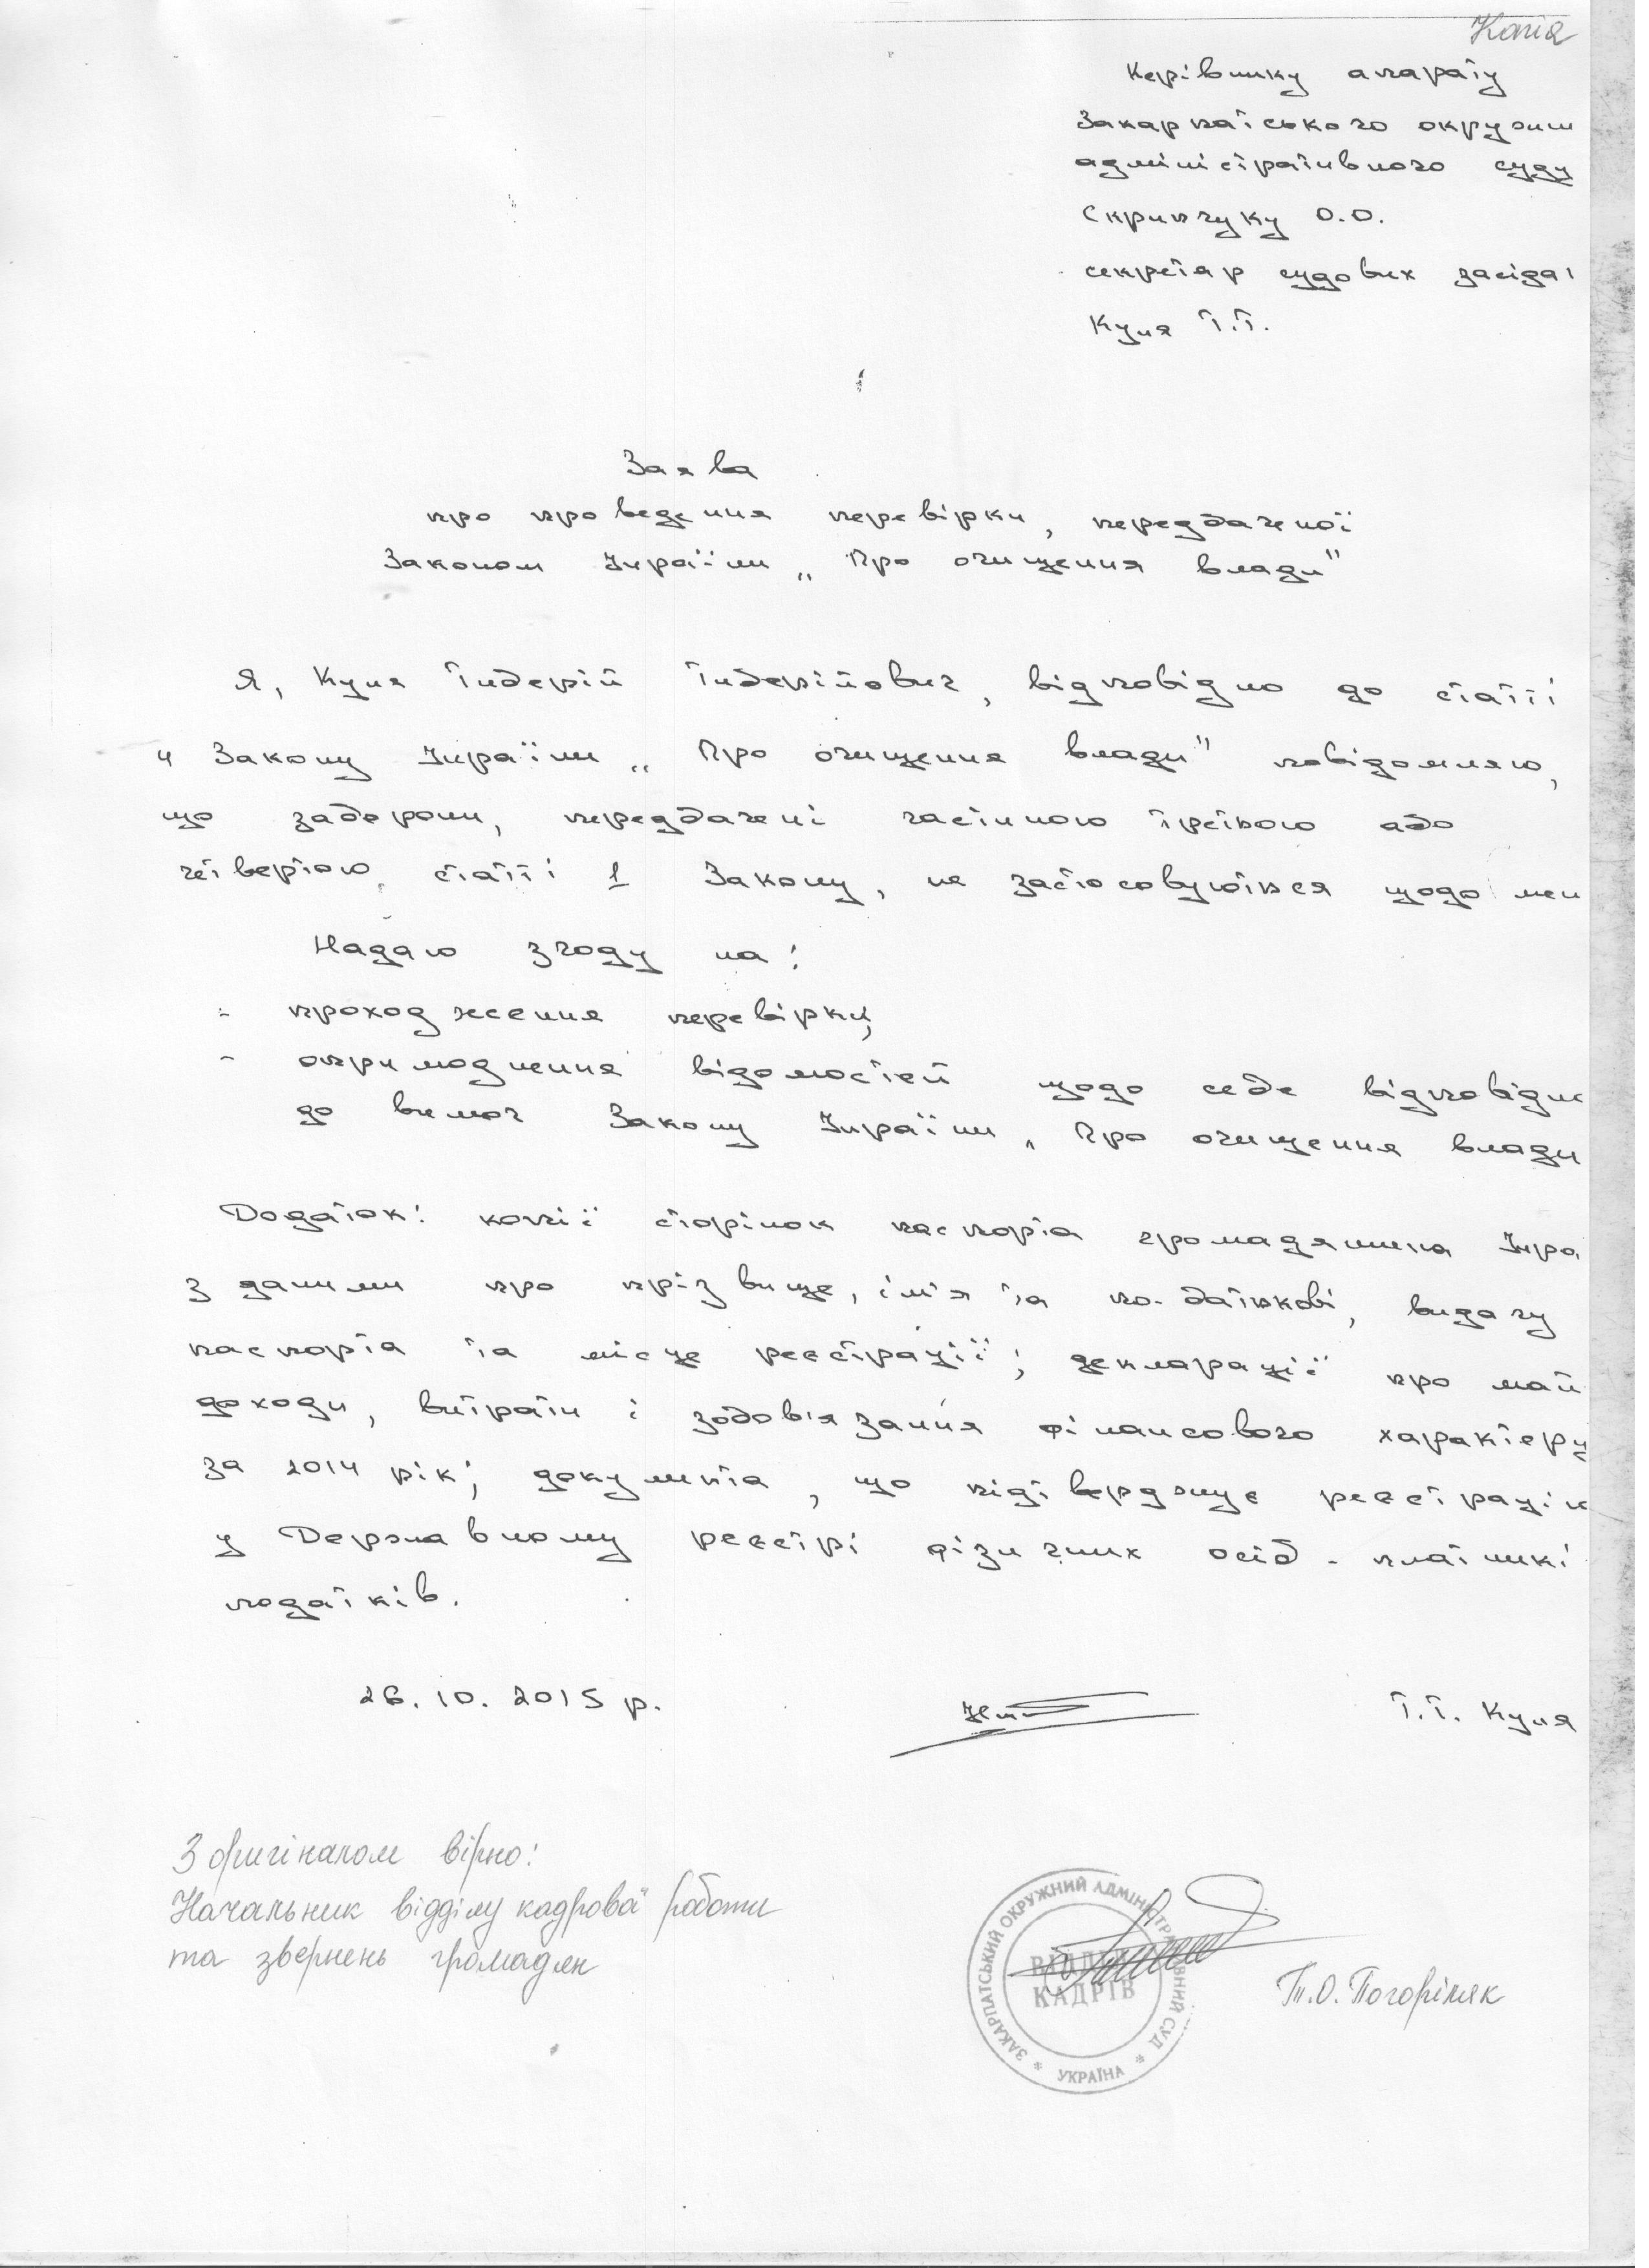 Копія
Керівнику апарату
Закарпатського окружн
адміністративного суду
Скрипчуку О.О.
секретар судових засідан
Куля Т.Т.
Заява
про проведення перевірки, передбаченої
Законом України „Про очищення влади"
Я, Куля Тиберій Тиберійович, відповідно до статті
4 Закону України „Про очищення влади" повідомляю,
що заборони, передбачені частиною третьою або
четвертою статті 1 Закону, не застосовуються щодо мен
Надаю згоду на:
- проходження перевірки;
- оприлюднення відомостей щодо себе відповідно
до вимог Закону України „Про очищення влади
Додаток: копії сторінок паспорта громадянина Укра
з даними про прізвище, ім'я та по-батькові, видачу
паспорта та місце реєстрації; декларації про май
доходи, витрати і зобов'язання фінансового характеру
за 2014 рік; документа, що підтверджує реєстрацію
у Державному реєстрі фізичних осіб - платникі
податків.
26.10.2015 р. Т.Т. Куля
З оригіналом вірно:
Начальник відділу кадрової роботи
та звернень громадян
ЗАКАРПАТСЬКИЙ ОКРУЖНИЙ АДМІНІСТРАТИВНИЙ СУД * УКРАЇНА *
ВІДДІЛ
КАДРІВ
Т.О. Погоріляк